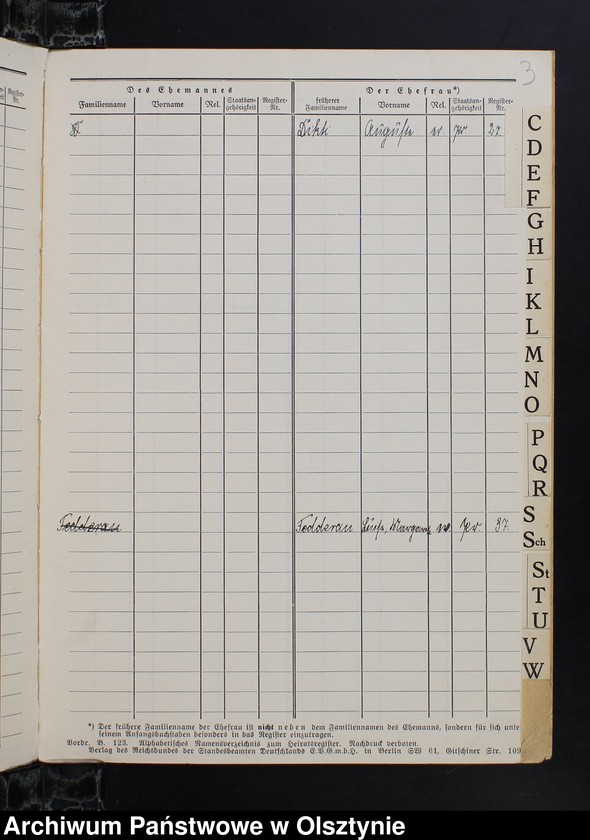 3
Des Ehemannes
Der Ehefrau*)
Familienname Vorname Rel. Staatsan-gehörigkeit Register-Nr. früherer Familienname Vorname Rel. Staatsan-gehörigkeit Register-Nr.
Auguste ev. Pr. 27.
Fedderau Fedderau Pr. 37.
C
D
E
F
G
H
I
K
L
M
N
O
P
Q
R
S
Sch
St
T
U
V
W
*) Der frühere Familienname der Ehefrau ist nicht neben dem Familiennamen des Ehemanns, sondern für sich unte
seinem Anfangsbuchstaben besonders in das Register einzutragen.
Vordr. B. 123. Alphabetisches Namensverzeichnis zum Heiratsregister. Nachdruck verboten.
Verlag des Reichsbundes der Standesbeamten Deutschlands E.V.G.m.b.H. in Berlin SW 61, Gitschiner Str. 109
Archiwum Państwowe w Olsztynie